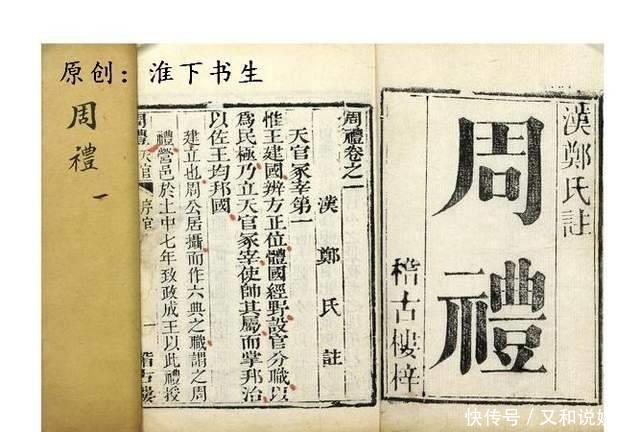 原创：淮下书生
漢鄭氏註
周禮
稽古樓梓
周禮卷之一
漢鄭氏註
天官冢宰第一
惟王建國辨方正位體國經野設官分職以
爲民極乃立天官冢宰使帥其屬而掌邦治
以佐王均邦國
建立也周公居攝而作六典之職謂之周
禮營邑於土中七年致政成王以此禮授
周禮 天官 序官 一 稽古樓
周禮 一
快传号／又和说